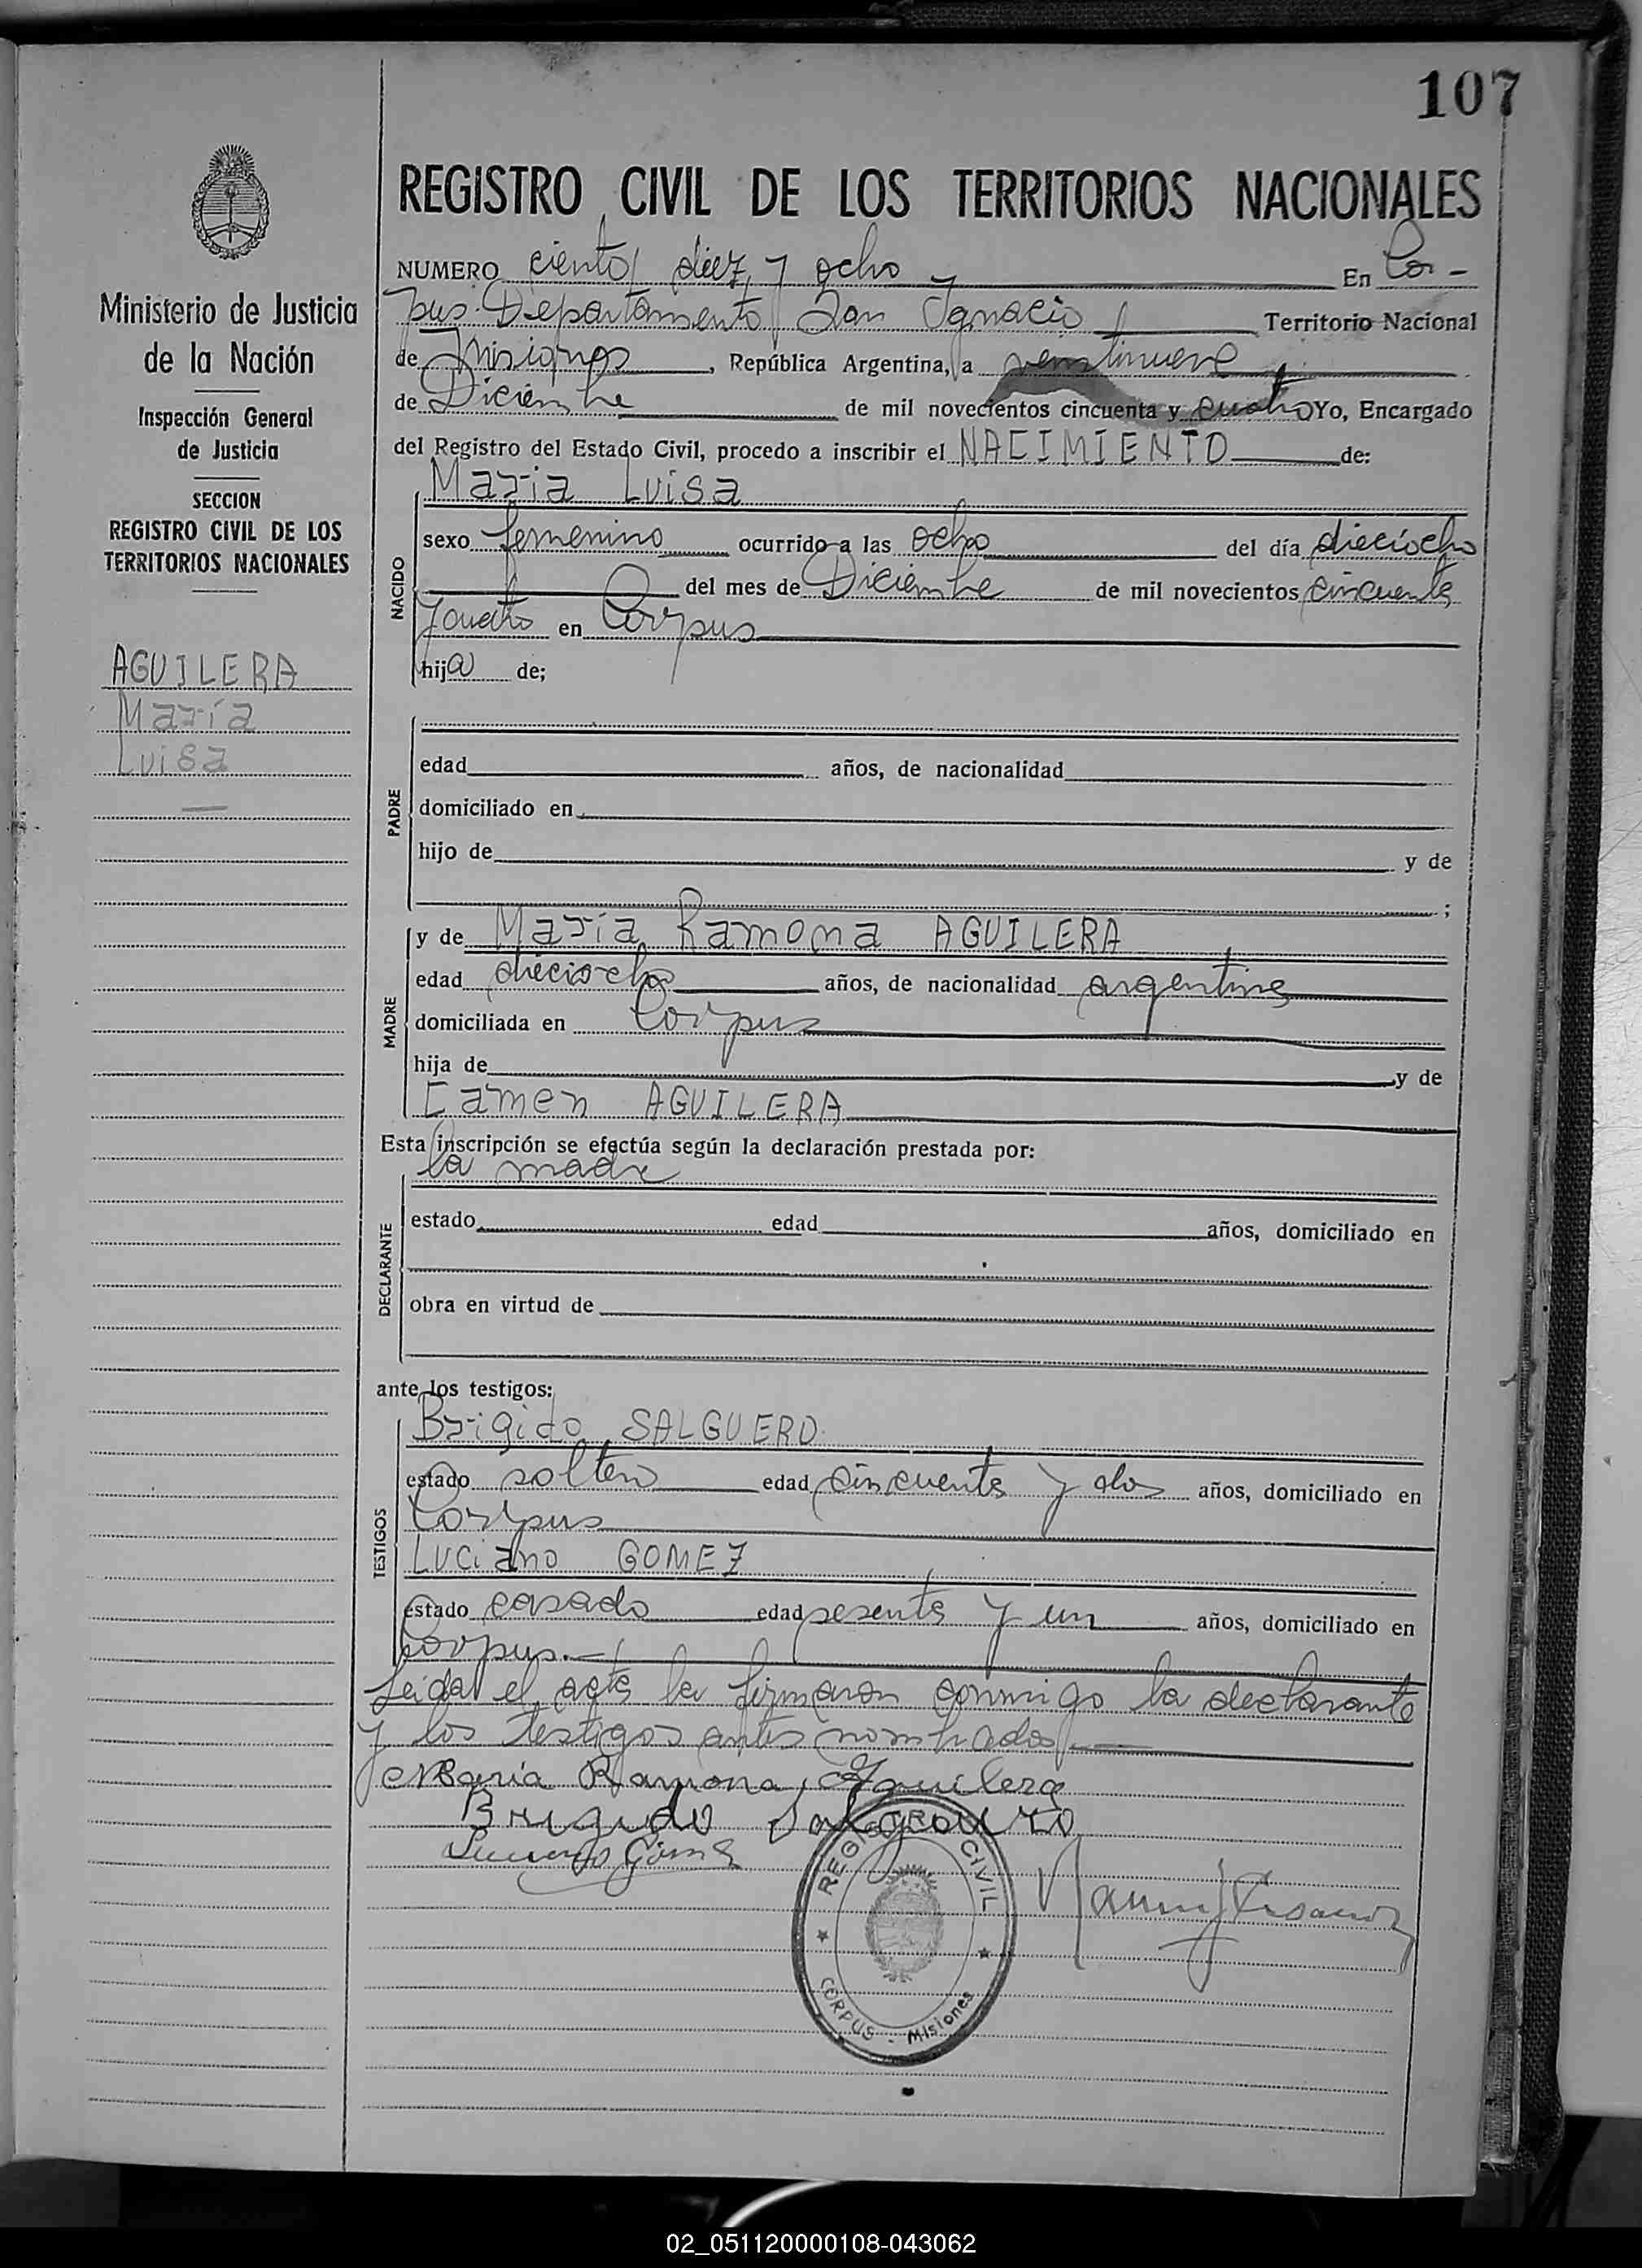 107
REGISTRO CIVIL DE LOS TERRITORIOS NACIONALES
NUMERO ciento diez y ocho En Cor-
pus Departamento San Ignacio Territorio Nacional
de Misiones, República Argentina, a veintinueve
de Diciembre de mil novecientos cincuenta y cuatro Yo, Encargado
del Registro del Estado Civil, procedo a inscribir el NACIMIENTO de:
María Luisa
NACIDO
sexo femenino ocurrido a las ocho del día dieciocho
del mes de Diciembre de mil novecientos cincuenta
y cuatro en Corpus
hija de;
PADRE
edad años, de nacionalidad
domiciliado en
hijo de y de
;
MADRE
y de María Ramona AGUILERA
edad dieciocho años, de nacionalidad argentina
domiciliada en Corpus
hija de y de
Camen AGUILERA
Esta inscripción se efectúa según la declaración prestada por:
la madre
DECLARANTE
estado edad años, domiciliado en
obra en virtud de
ante los testigos:
TESTIGOS
Brigido SALGUERO
estado soltero edad cincuenta y dos años, domiciliado en
Corpus
Luciano GOMEZ
estado casado edad sesenta y un años, domiciliado en
Corpus.-
Leida el acta la firmaron conmigo la declarante
y los testigos antes nombrados.
Maria Ramona Aguilera
Brigido Salguero
Luciano Gómez
REGISTRO CIVIL
CORPUS - Misiones
Ministerio de Justicia
de la Nación
Inspección General
de Justicia
SECCION
REGISTRO CIVIL DE LOS
TERRITORIOS NACIONALES
AGUILERA
María
Luisa
02_051120000108-043062